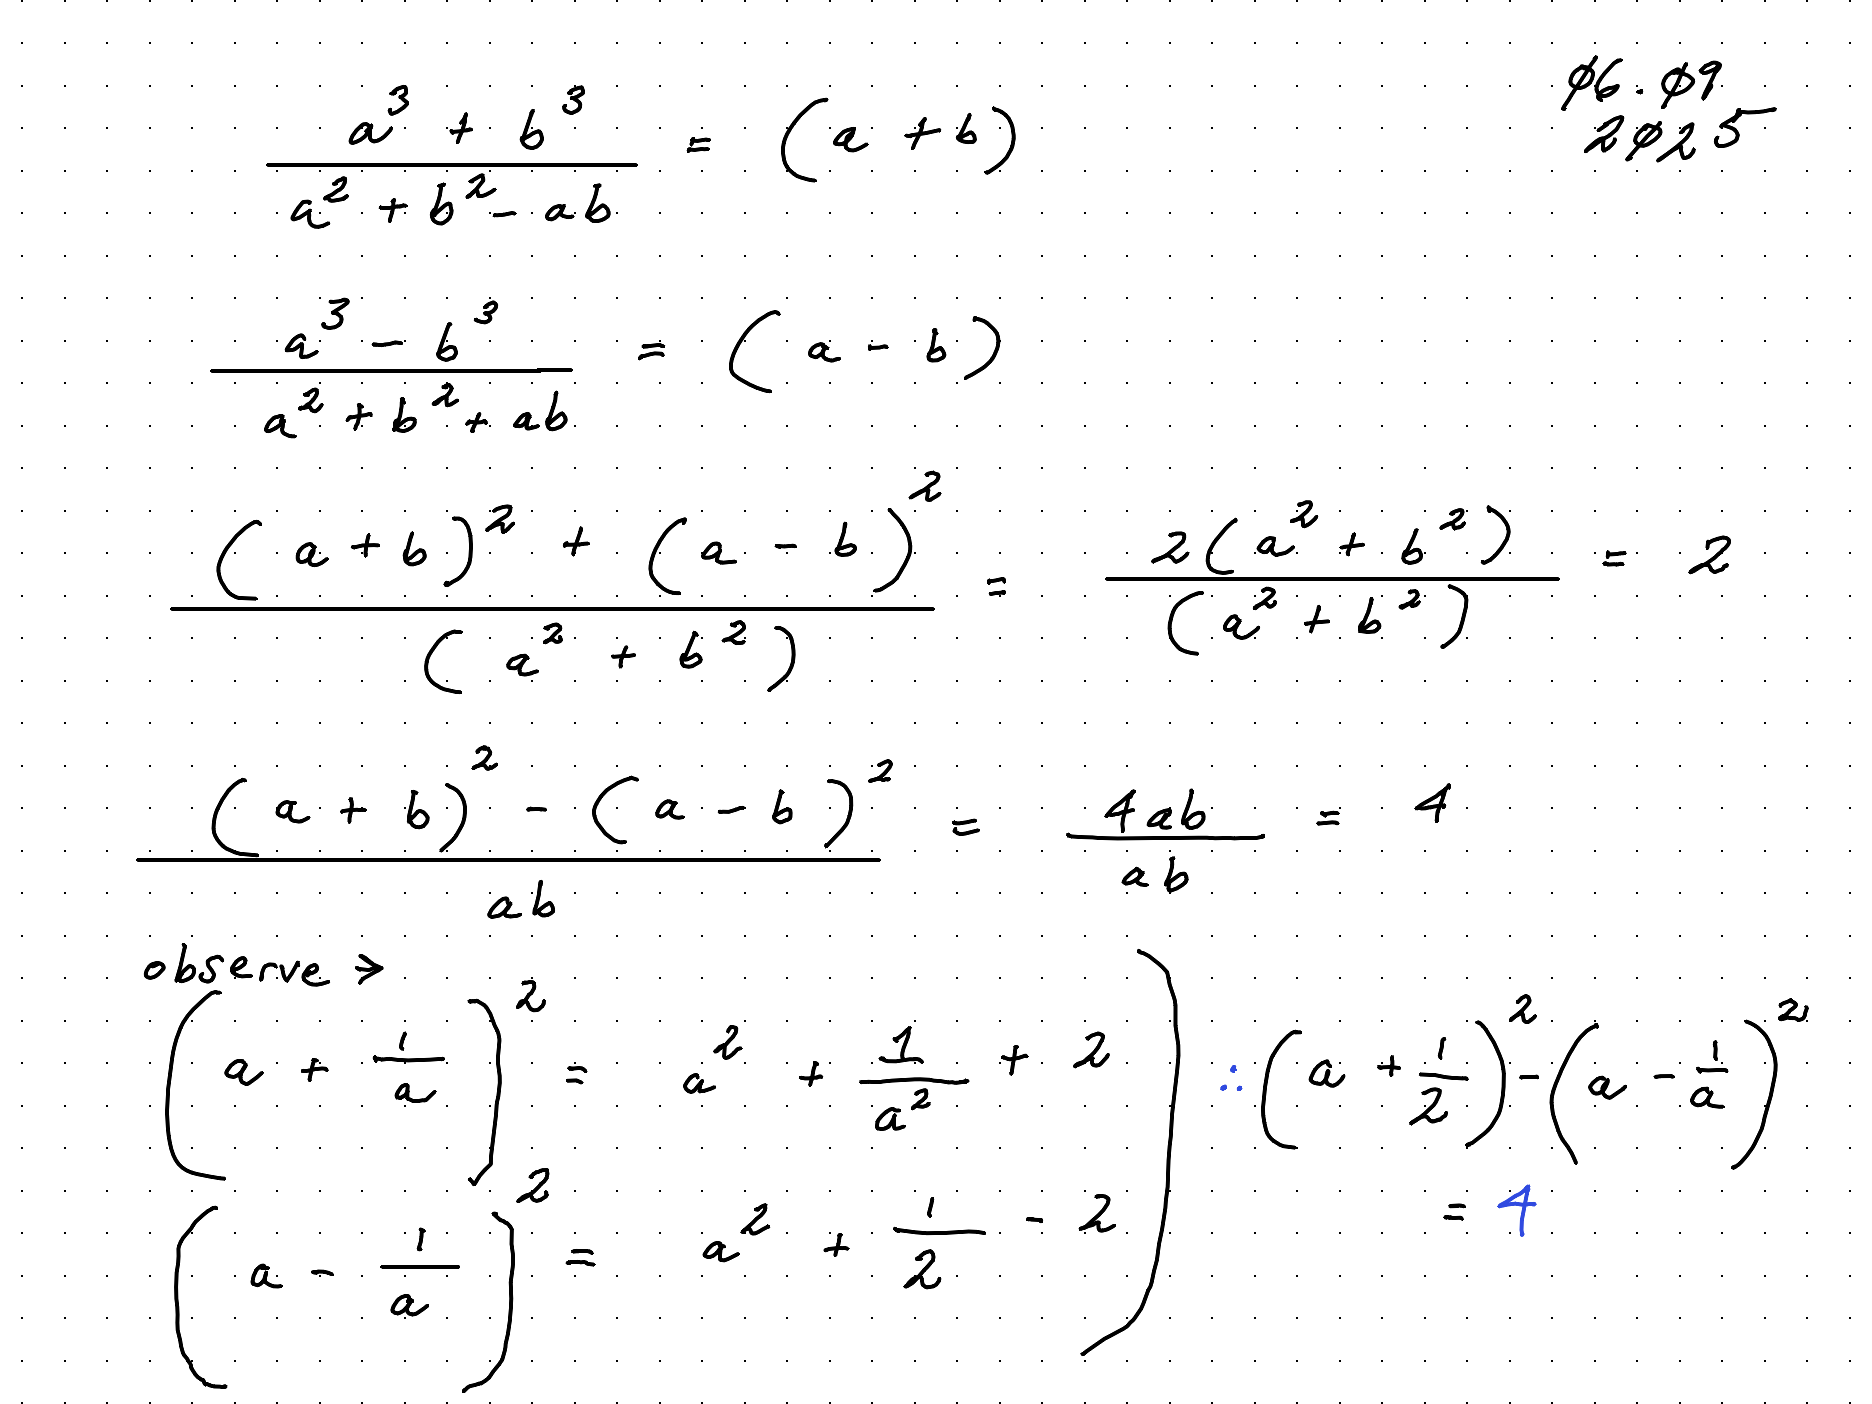 06.09
2025
a³ + b³ / a² + b² - ab = (a + b)
a³ - b³ / a² + b² + ab = (a - b)
(a + b)² + (a - b)² / (a² + b²) = 2(a² + b²) / (a² + b²) = 2
(a + b)² - (a - b)² / ab = 4ab / ab = 4
observe →
(a + 1/a)² = a² + 1/a² + 2
(a - 1/a)² = a² + 1/2 - 2
∴ (a + 1/2)² - (a - 1/a)²
= 4